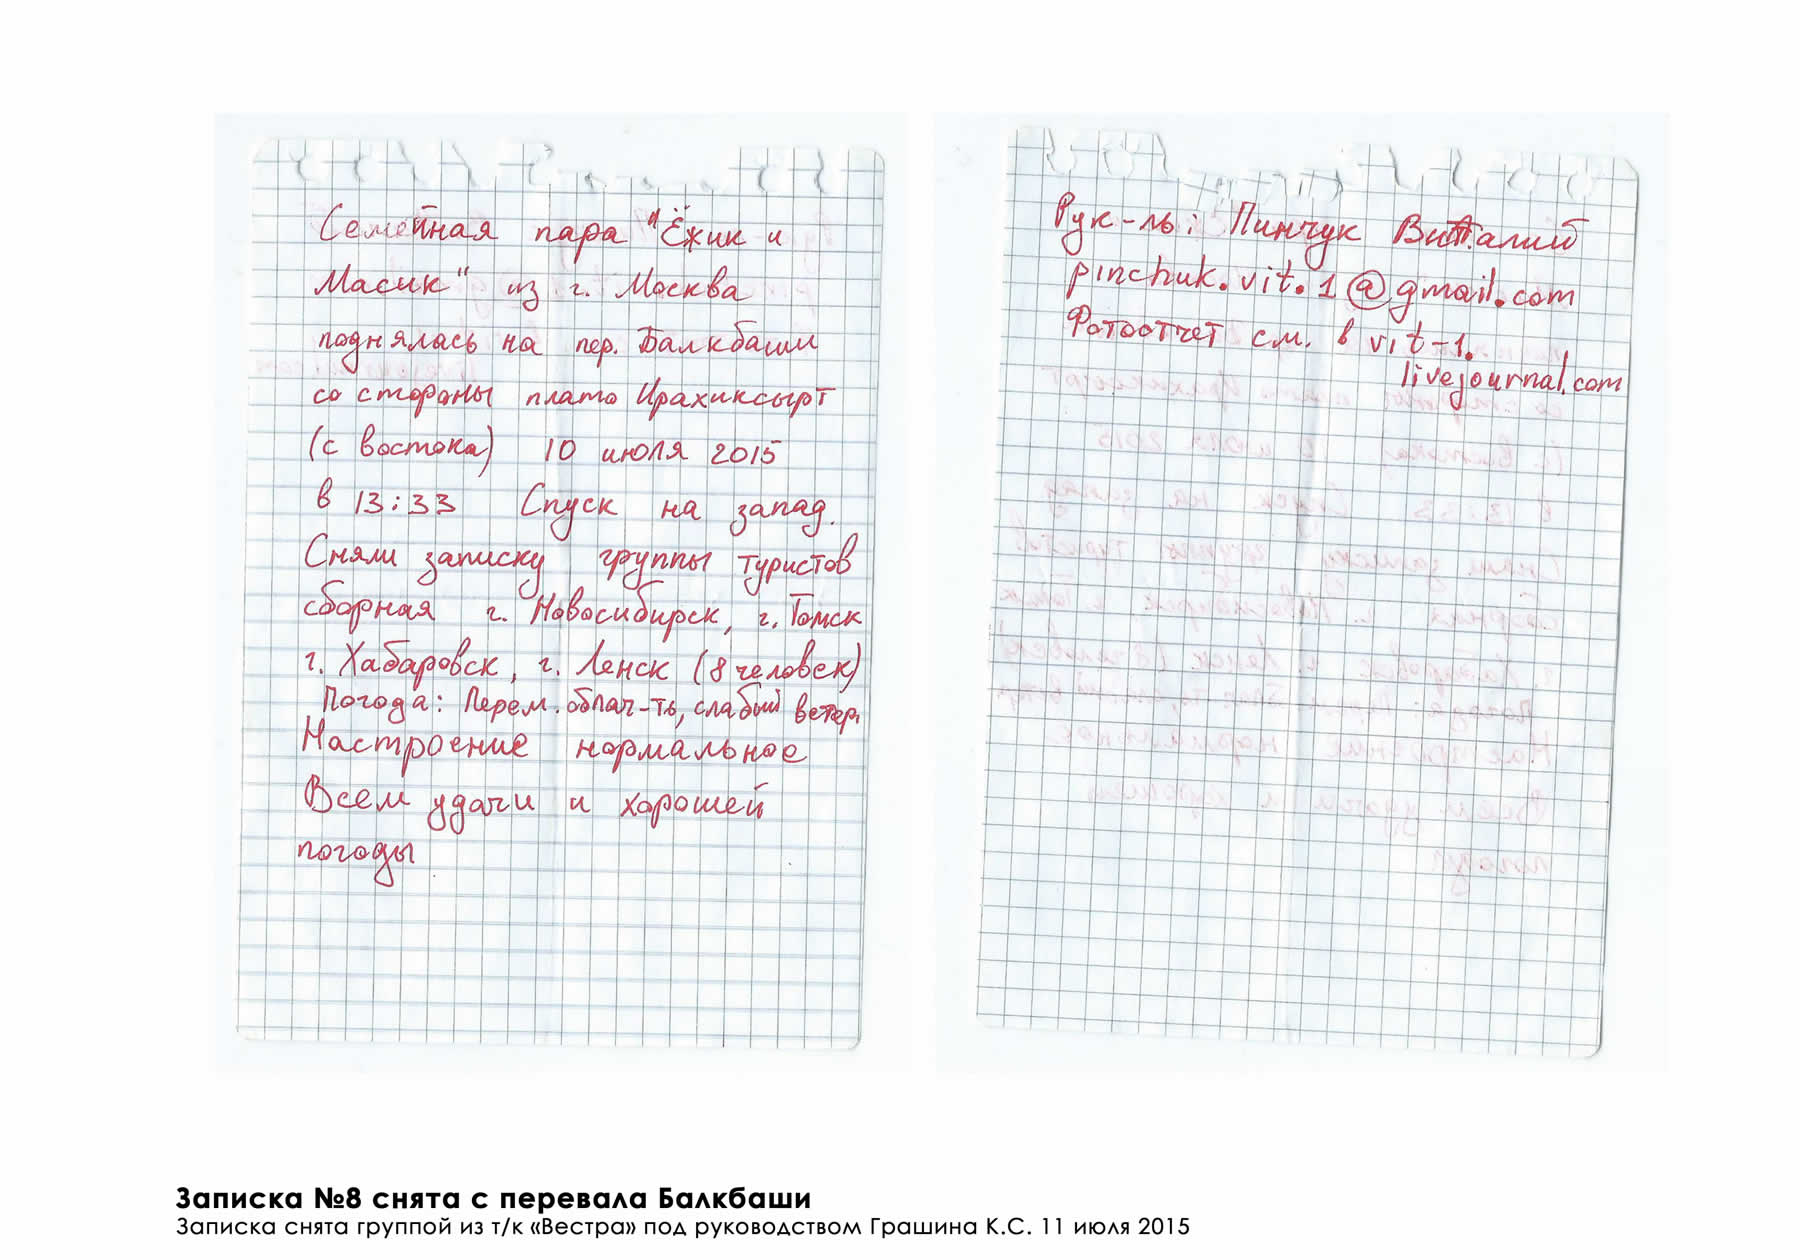 Семейная пара "Ёжик и
Масик" из г. Москва
поднялась на пер. Балкбаши
со стороны плато Ирахиксырт
(с востока) 10 июля 2015
в 13:33 Спуск на запад.
Сняли записку группы туристов
сборная г. Новосибирск, г. Томск
г. Хабаровск, г. Ленск (8 человек)
Погода: Перем. облач-ть, слабый ветер.
Настроение нормальное
Всем удачи и хорошей
погоды
Рук-ль: Пинчук Виталий
pinchuk.vit.1@gmail.com
Фотоотчет см. в vit-1.
livejournal.com
Записка №8 снята с перевала Балкбаши
Записка снята группой из т/к «Вестра» под руководством Грашина К.С. 11 июля 2015